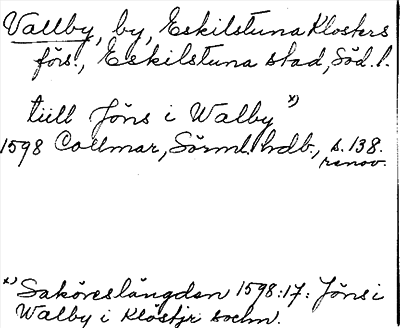 Vallby, by, Eskilstuna Klosters
förs., Eskilstuna stad, Söd. l.
tiill Jöns i Walby x)
1598 Collmar, Sörml. hdb., s. 138.
renov.
x) Saköreslängden 1598:17: Jöns i
Walby i Klöstjr sochn.